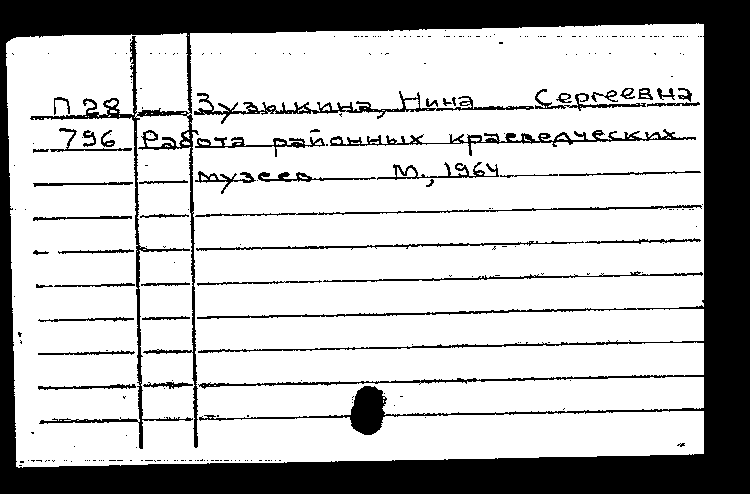 П 28 Зузыкина, Нина Сергеевна
796 Работа районных краеведческих
музеев М., 1964